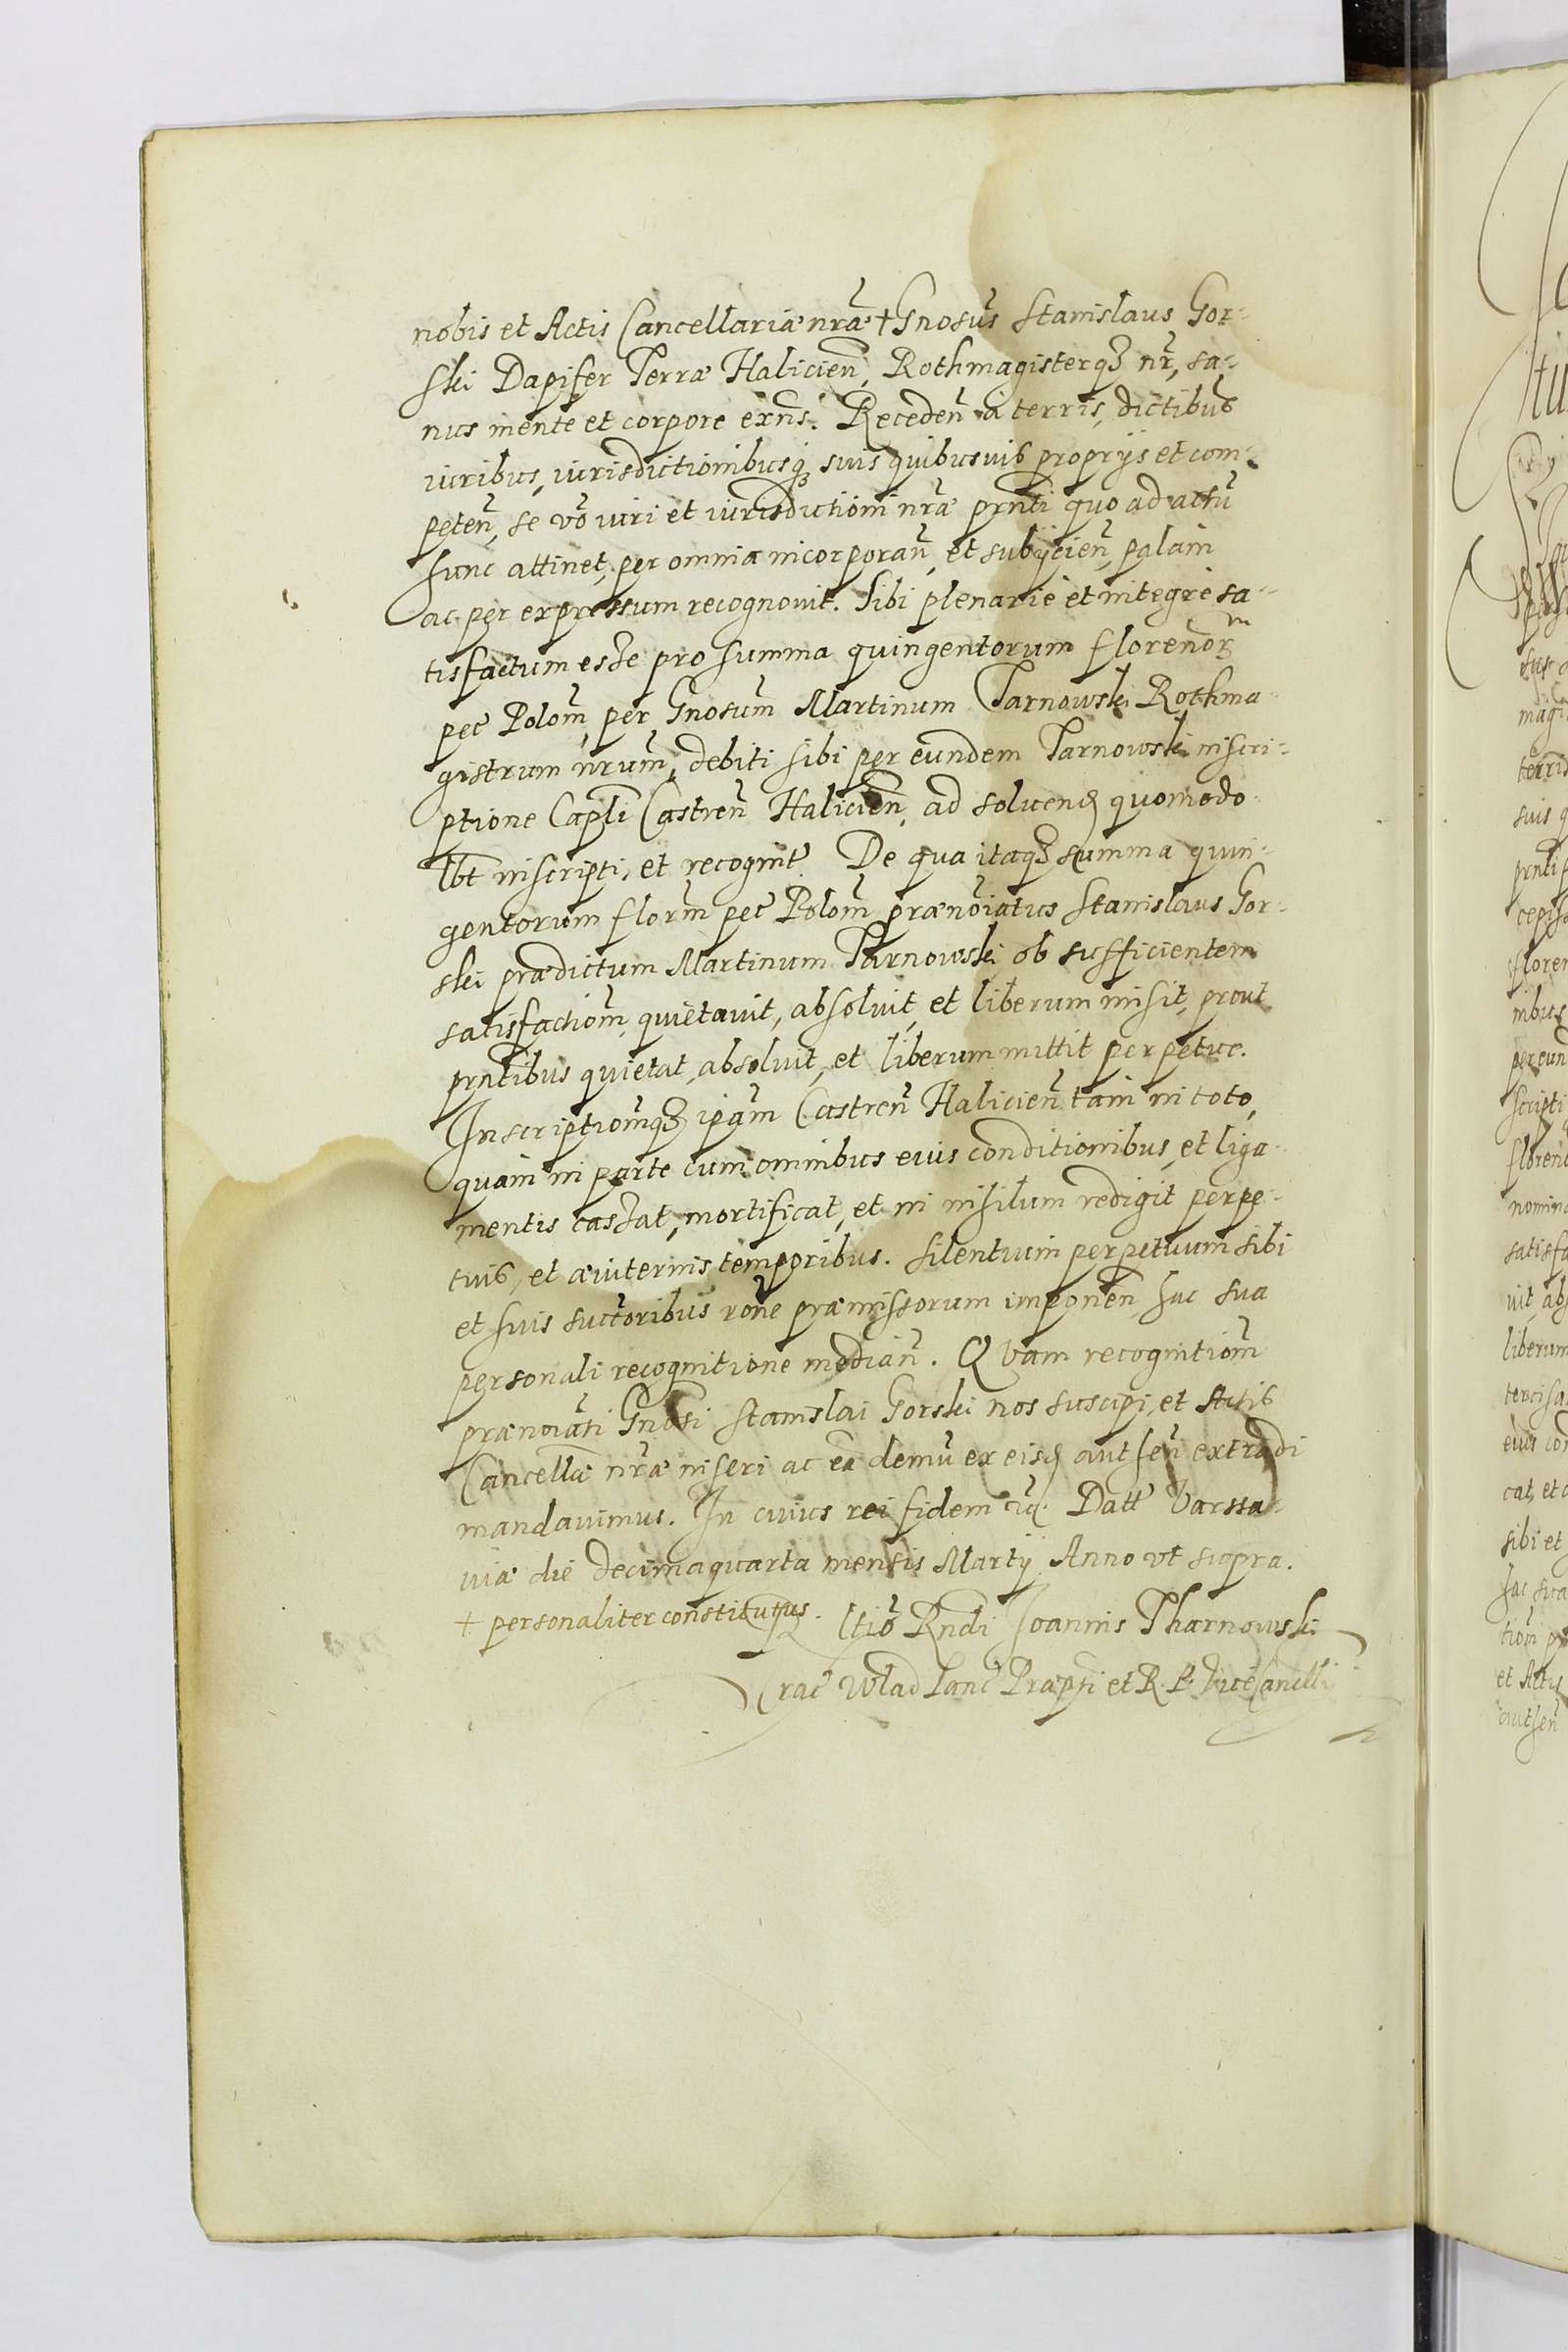 nobis et Actis Cancellariæ nr̃æ † Gnosũs Stanislaus Gor-
ski Dapifer Terræ Halicieñ, Rothmagisterqȝ nr̃, sa-
nus mente et corpore exñs. Recedeñ a terris, dictibus
iuribus, iurisdictionibusqȝ suis quibusuis proprijs et com-
peteñ, se vo͂ iuri et iurisdictioni nr̃æ prñti quo ad actũ
hunc attinet, per omnia incorporañ, et subijcieñ, palam
ac per expressum recognouit. Sibi plenarie et integre sa-
tisfactum esse pro summa quingentorum florenor̃
pec̃ Polom̃, per Gnosum̃ Martinum Tarnowski Rothma
gistrum nr̃um, debiti sibi per eundem Tarnowski inscri-
ptione Capli Castreñ Halicieñ, ad soluend quomodo
lbt inscripti, et recognit̃. De qua itaqȝ summa quin-
gentorum florm̃ pec̃ Polom̃ prænoĩatus Stanislaus Gor-
ski prædictum Martinum Tarnowski ob sufficientem
satisfactiom̃, quietauit, absoluit, et liberum misit, prout
prñtibus quietat, absoluit, et liberum mittit perpetuo.
Inscriptiom̃qȝ ipãm Castreñ Halicieñ tam in toto,
quam in parte cum omnibus eius conditionibus, et liga-
mentis cassat, mortificat, et in nihilum redigit perpe-
tuis, et æuiternis temporibus. Silentium perpetuum sibi
et suis succ̃oribus rõne præmissorum imponeñ, hac sua
personali recognitione mediañ. Quam recognitiom̃
prænoĩati Gnosi Stanislai Gorski nos suscipi, et Actis
Cancellæ nr̃æ inseri ac eã demũ ex eisd autheñ extradi
mandauimus. In cuius rei fidem Datt̃ Varssa-
uiæ die decimaquarta mensis Martij Anno vt supra.
† personaliter constitutus. Rltiõ Rndi Joannis Tharnowski
Crac̃ Wlad Lanc̃ Præpti et R. P. ViceCancellij